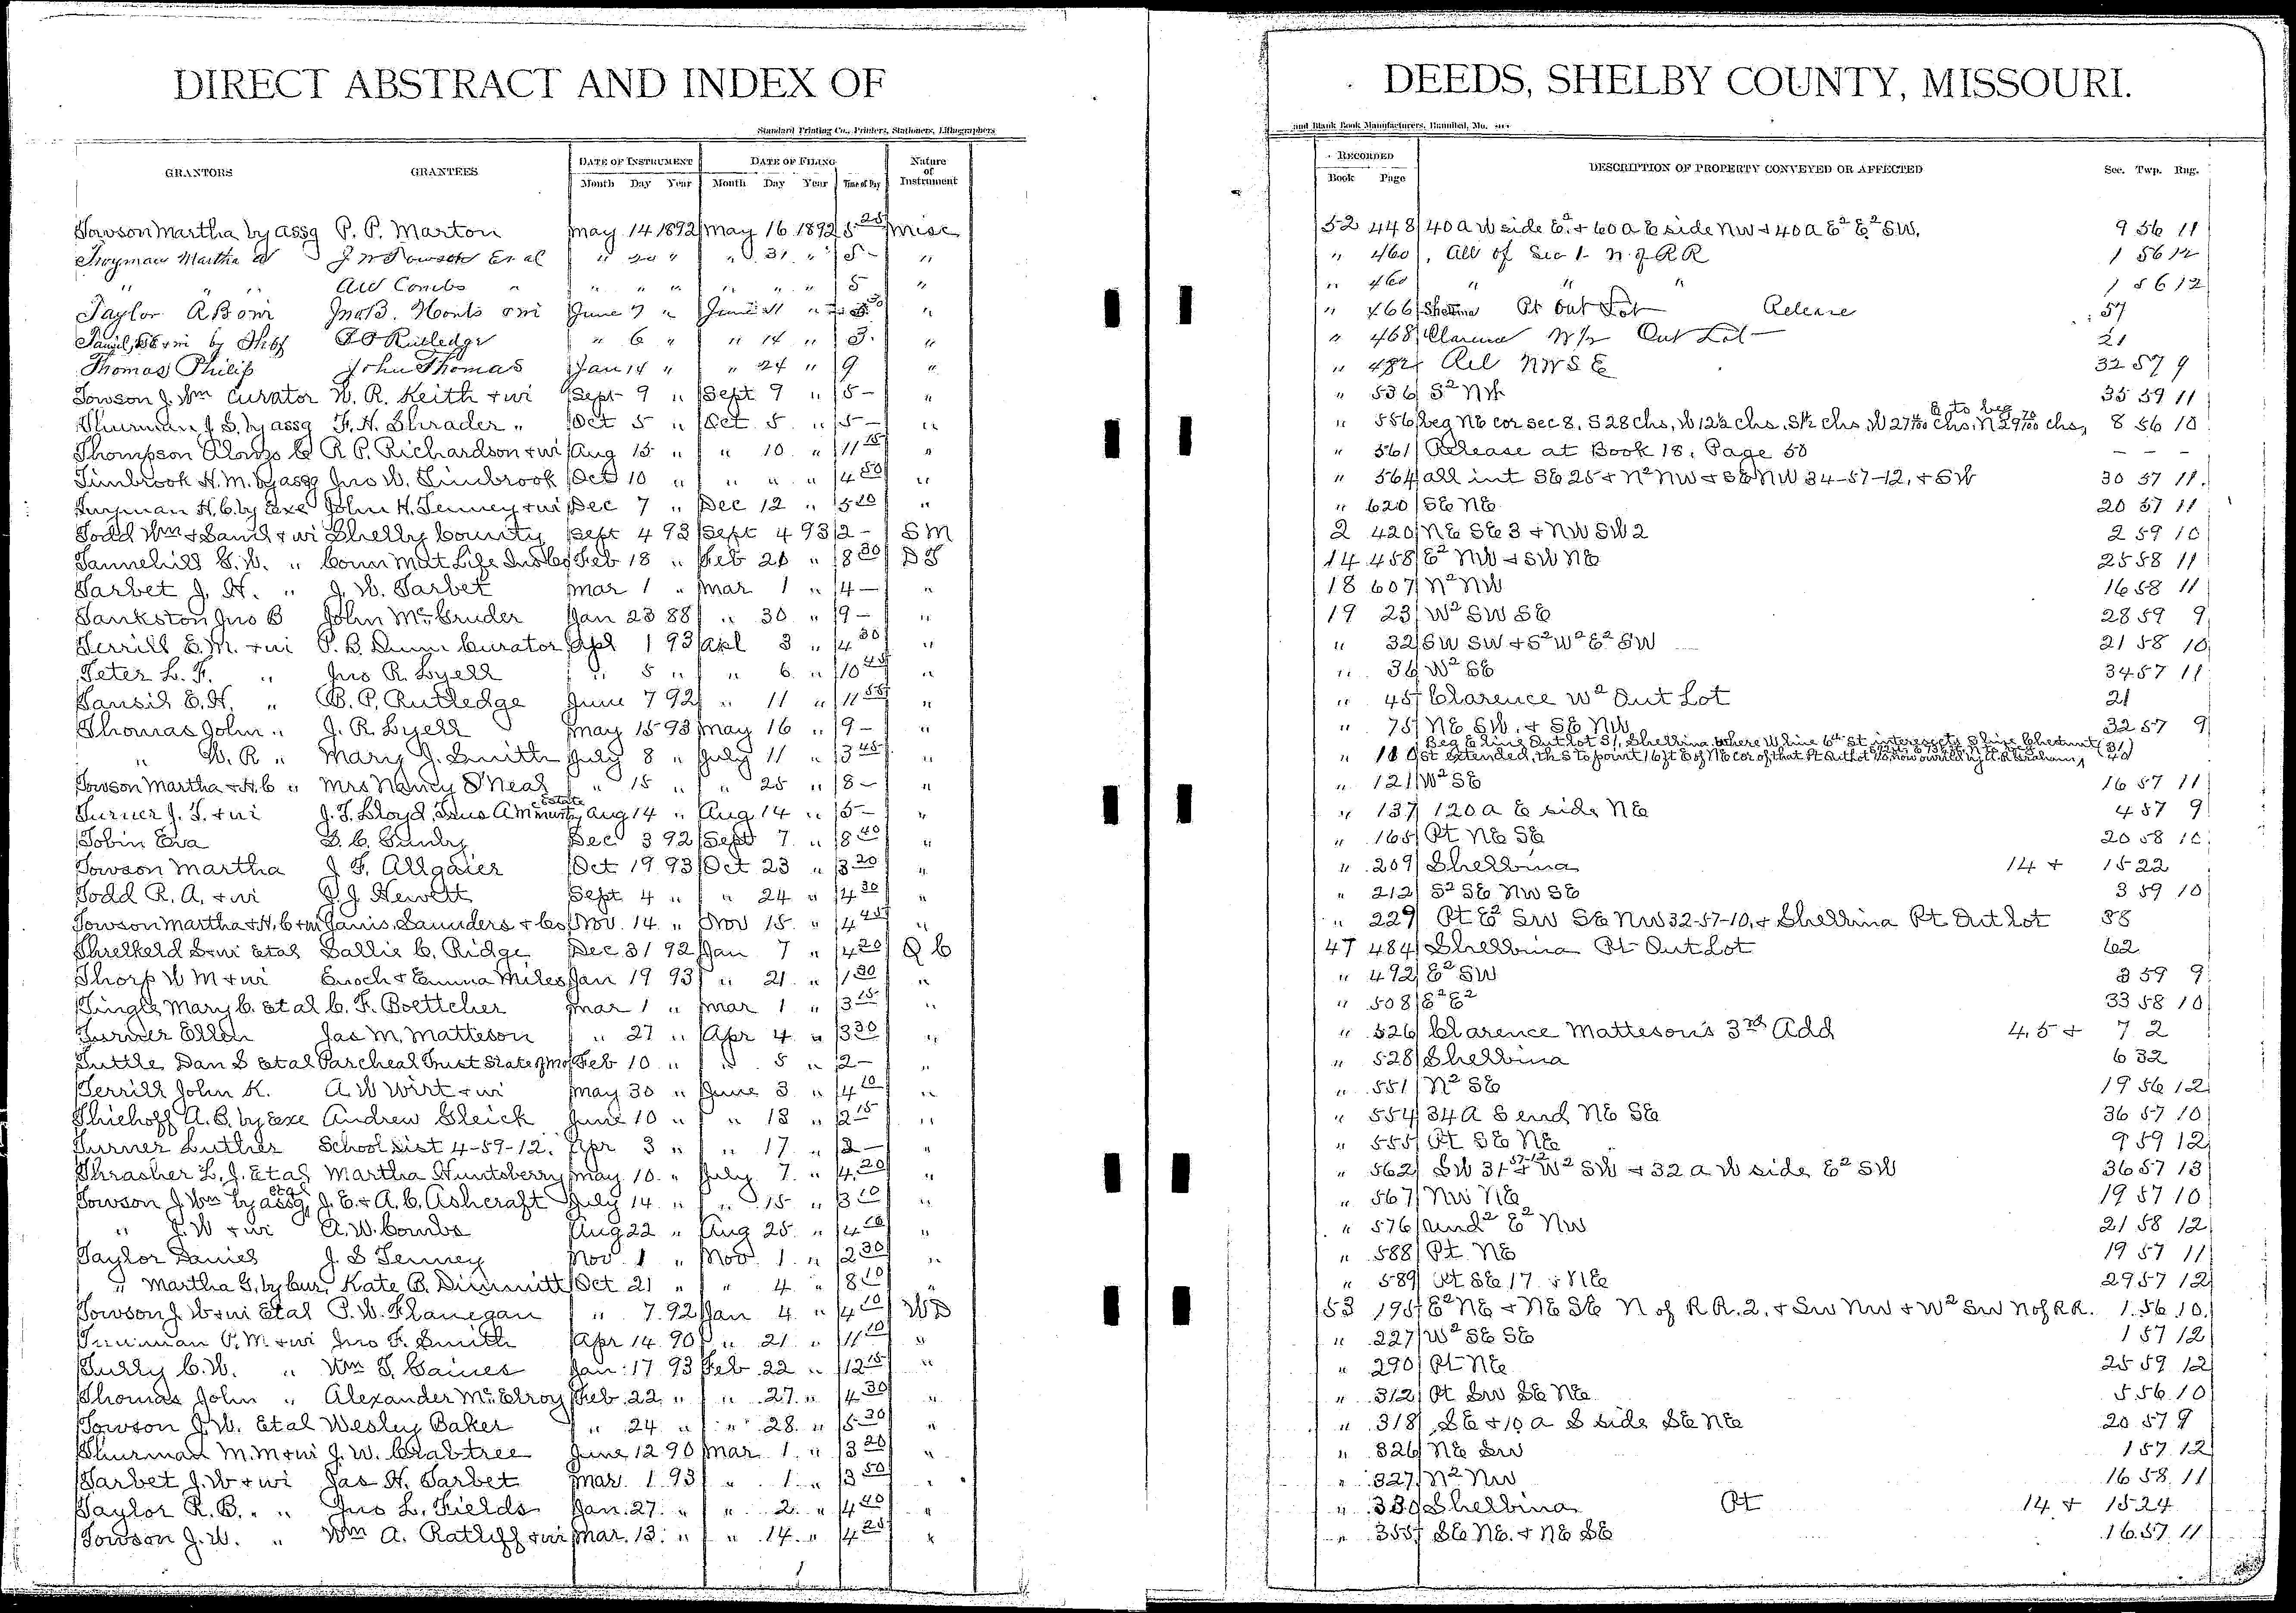 DIRECT ABSTRACT AND INDEX OF DEEDS, SHELBY COUNTY, MISSOURI.
Standard Printing Co., Printers, Stationers, Lithographers and Blank Book Manufacturers, Hannibal, Mo.
GRANTORS GRANTEES DATE OF INSTRUMENT DATE OF FILING Nature of Instrument RECORDED DESCRIPTION OF PROPERTY CONVEYED OR AFFECTED Sec. Twp. Rng.
Month Day Year Month Day Year Time of Day Book Page
Towson Martha by assg P. P. Marton May 14 1892 May 16 1892 5 25 Misc 52 448 40 a W side E2 + 60 a E side NW + 40 a E2 E2 SW. 9 56 11
Martha J W Towson Et al " 20 " " 31 " 5 - " " 460 All of Sec 1 - N. of R R 1 56 12
" " AW Combs " " " " " " " 5 " " 460 " " " 1 56 12
Taylor A B + wi Jno B. Houts + wi June 7 " June 11 " " " 466 Pt Out Lot Release 57
by Shff Rutledge " 6 " " 14 " 3. " " 468 Clarence W 1/2 Out Lot - 21
Thomas Philip John Thomas Jan 14 " " 24 " 9 " " 482 Rel NW S E 32 57 9
Towson J. Wm Curator W. R. Keith + wi Sept 9 " Sept 9 " 5 - " " 536 S2 NW 35 59 11
Thurman J. S. by assg F. H. Shrader " Oct 5 " Oct 5 " 5 - " " 556 beg NE cor sec 8, S 28 chs, W 12½ chs, S½ chs, W 27 chs, N 29 chs, E to beg 8 56 10
Thompson Alonzo C R. P. Richardson + wi Aug 15 " " 10 " 11 15 " " 561 Release at Book 18, Page 50 - - -
Timbrook H. M. by assg Jno W. Timbrook Oct 10 " " " " 4 50 " " 564 all int SE 25 + N2 NW + SE NW 34-57-12, + SW 30 57 11
H. C. by Exe John H. Tenney + wi Dec 7 " Dec 12 " 5 20 " " 620 SE NE 20 57 11
Todd Wm + Saml + wi Shelby County Sept 4 93 Sept 4 93 2 - S M 2 420 NE SE 3 + NW SW 2 2 59 10
Tannehill G. W. " Conn Mut Life Ins Co Feb 18 " Feb 20 " 8 30 D T 14 458 E2 NW + SW NE 25 58 11
Tarbet J. H. " J. W. Tarbet Mar 1 " Mar 1 " 4 - " 18 607 N2 NW 16 58 11
Tankston Jno B John McGruder Jan 23 88 " 30 " 9 - " 19 23 W2 SW SE 28 59 9
Terrill E. M. + wi P. B. Dunn Curator Apl 1 93 Apl 3 " 4 30 " " 32 SW SW + S2 W2 E2 SW 21 58 10
Teter L. F. " Jno R. Lyell " 5 " " 6 " 10 45 " " 36 W2 SE 34 57 11
Tansil E. H. " B. P. Rutledge June 7 92 " 11 " 11 55 " " 45 Clarence W2 Out Lot 21
Thomas John " J. R. Lyell May 15 93 May 16 " 9 - " " 75 NE SW. + SE NW 32 57 9
" W. R " Mary J. Smith July 8 " July 11 " 3 45 " " 110 Beg E line Outlot 31, Shelbina where W line 6th St intersects S line Chestnut St extended, th S to point 16 ft E of NE cor of that Pt Outlot 40 now owned by Graham, (31) (40)
Towson Martha + H. C " Mrs Nancy O'Neal " 15 " " 25 " 8 - " " 121 W2 SE 16 57 11
Turner J. T. + wi J. T. Lloyd, Trus Estate Aug 14 " Aug 14 " 5 - " " 137 120 a E side NE 4 57 9
Tobin Eva D. C. Gunby Dec 3 92 Sept 7 " 8 40 " " 165 Pt NE SE 20 58 10
Towson Martha J. F. Allgaier Oct 19 93 Oct 23 " 3 20 " " 209 Shelbina 14 + 15 22
Todd R. A. + wi P. J. Hewett Sept 4 " " 24 " 4 30 " " 212 S2 SE NW SE 3 59 10
Towson Martha + H. C + wi Janis, Saunders + Co Nov. 14 " Nov 15 " 4 45 " " 229 Pt E2 SW SE NW 32-57-10, + Shelbina Pt Out lot 38
Threlkeld S + wi Etal Sallie C. Ridge Dec 31 92 Jan 7 " 4 20 Q C 47 484 Shelbina Pt Out Lot 62
Thorp W M + wi Enoch + Emma Miles Jan 19 93 " 21 " 1 30 " " 492 E2 SW 3 59 9
Tingle Mary C. Et al C. F. Boettcher Mar 1 " Mar 1 " 3 15 " " 508 E2 E2 33 58 10
Turner Ellen Jas M. Matteson " 27 " Apr 4 " 3 30 " " 526 Clarence Matteson's 3rd Add 4, 5 + 7 2
Tuttle Dan S Et al Parcheal Trust State of Mo Feb 10 " " 5 " 2 - " 528 Shelbina 6 32
Terrill John K. A W Wirt + wi May 30 " June 3 " 4 10 " " 551 N2 SE 19 56 12
Thiehoff A. B. by Exe Andrew Gleick June 10 " " 13 " 2 15 " " 554 34 A S end NE SE 36 57 10
Turner Luther School Dist 4-59-12. Apr 3 " " 17 " 2 - " " 555 Pt SE NE 9 59 12
Thrasher L. J. Et al Martha Huntsberry May 10 " July 7 " 4 20 " " 562 SW 31 57-12 + W2 SW + 32 a W side E2 SW 36 57 13
Towson J Wm by assg etal J. E. + A. C. Ashcraft July 14 " " 15 " 3 10 " " 567 NW NE 19 57 10
" J. W + wi A. W. Combs Aug 22 " Aug 25 " 4 " " 576 und2 E2 NW 21 58 12
Taylor Daniel J. S Tenney Nov 1 " Nov 1 " 2 30 " " 588 Pt NE 19 57 11
" Martha G. by Cur. Kate B. Dimmitt Oct 21 " " 4 " 8 10 " " 589 Pt SE 17 + NE 29 57 12
Towson J. W + wi Et al P. W. Flanegan " 7 92 Jan 4 " 4 10 W D 53 195 E2 NE + NE SE N of R R. 2, + SW NW + W2 SW N of R R. 1 56 10
M. + wi Jno F. Smith Apr 14 90 " 21 " 11 10 " " 227 W2 SE SE 1 57 12
Tully C. W. " Wm T. Gaines Jan 17 93 Feb 22 " 12 15 " " 290 Pt NE 25 59 12
Thomas John " Alexander McElroy Feb 22 " " 27 " 4 30 " " 312 Pt SW SE NE 5 56 10
Towson J. W. Et al Wesley Baker " 24 " " 28 " 5 30 " " 318 SE + 10 a S side SE NE 20 57 9
Thurman M. M + wi J. W. Crabtree June 12 90 Mar. 1 " 3 20 " " 326 NE SW 1 57 12
Tarbet J. W + wi Jas H. Tarbet Mar. 1 93 " 1 " 3 50 " " 327 N2 NW 16 58 11
Taylor R. B. " Jno L. Fields Jan. 27 " " 2 " 4 40 " " 330 Shelbina Pt 14 + 15 24
Towson J. W. " Wm A. Ratliff + wi Mar. 13 " " 14 " 4 25 " " 355 SE NE. + NE SE 16 57 11